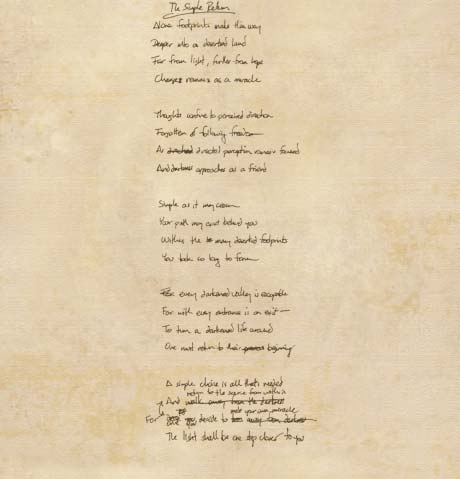 The Simple Return
Alone footprints make their way
Deeper into a deserted land
Far from light, further from hope
Change remains as a miracle
Thoughts confine to perceived direction
Forgotten of following freedom
As directed perception remain forward
And darkness approaches as a friend
Simple as it may seem
Your path may exist behind you
Within the many deserted footprints
You took so long to form
For every darkened valley is escapable
For with every entrance is an exit
To turn a darkened life around
One must return to their beginning
A simple choice is all that's needed
return to the from within
And walk away from the darkness
make your own miracle
For you decide to away from darkness
The light shall be one step closer to you